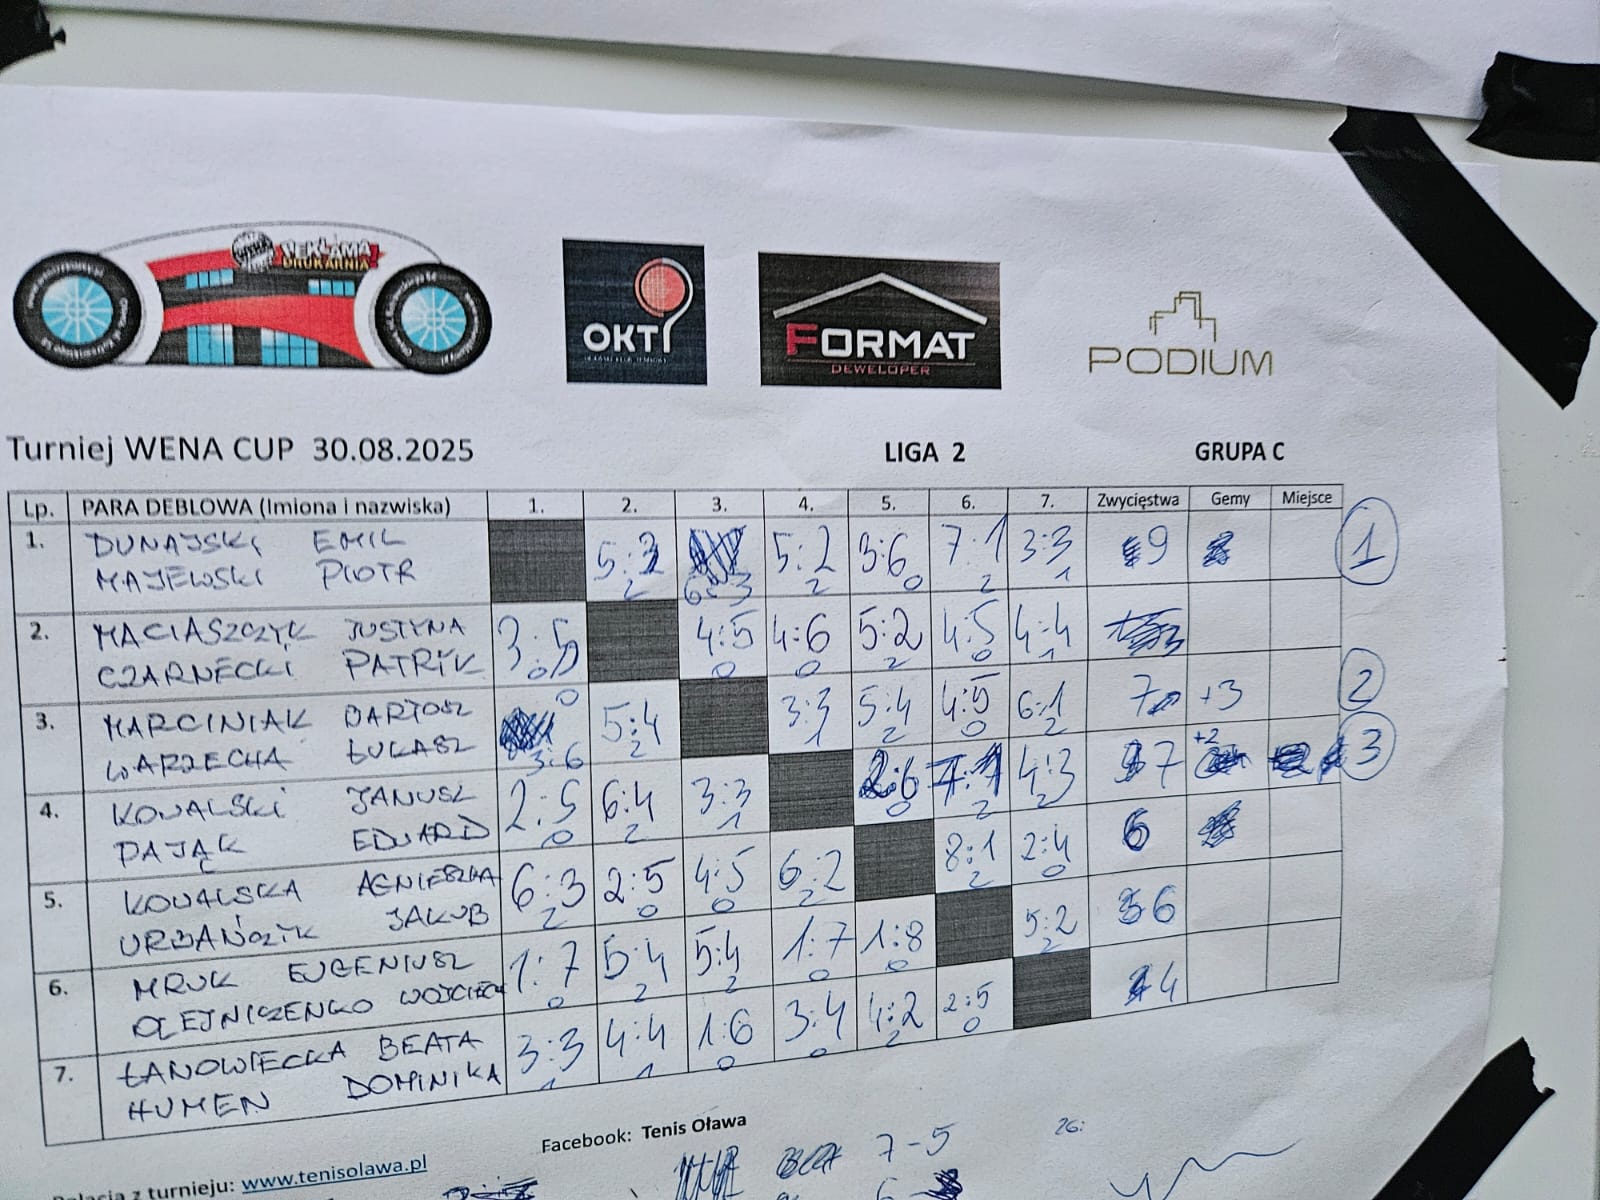 REKLAMA
DRUKARNIA
OKT
FORMAT
DEWELOPER
PODIUM
Turniej WENA CUP 30.08.2025 LIGA 2 GRUPA C
Lp. PARA DEBLOWA (Imiona i nazwiska) 1. 2. 3. 4. 5. 6. 7. Zwycięstwa Gemy Miejsce
1. DUNAJSKI EMIL 5:2 5:2 3:6 7:1 3:3 9 1
MAJEWSKI PIOTR 2 6:3 2 0 2 1
2. MACIASZCZYK JUSTYNA 3:5 4:5 4:6 5:2 4:5 4:4
CZARNECKI PATRYK 0 0 0 2 0 1
3. MARCINIAK BARTOSZ 0 5:4 3:3 5:4 4:5 6:1 7 +3 2
WARZECHA ŁUKASZ 3:6 2 1 2 0 2
4. KOWALSKI JANUSZ 2:5 6:4 3:3 2:6 7:1 4:3 7 +2 3
PAJĄK EDWARD 0 2 1 0 2 2
5. KOWALSKA AGNIESZKA 6:3 2:5 4:5 6:2 8:1 2:4 6
URBAŃCZYK JAKUB 2 0 0 2 2 0
6. MRUK EUGENIUSZ 1:7 5:4 5:4 1:7 1:8 5:2 6
OLEJNICZENKO WOJCIECH 0 2 2 0 0 2
7. ŁANOWIECKA BEATA 3:3 4:4 1:6 3:4 4:2 2:5 4
HUMEN DOMINIKA 1 1 0 0 2 0
Facebook: Tenis Oława
7-5
26:
Relacja z turnieju: www.tenisolawa.pl
6